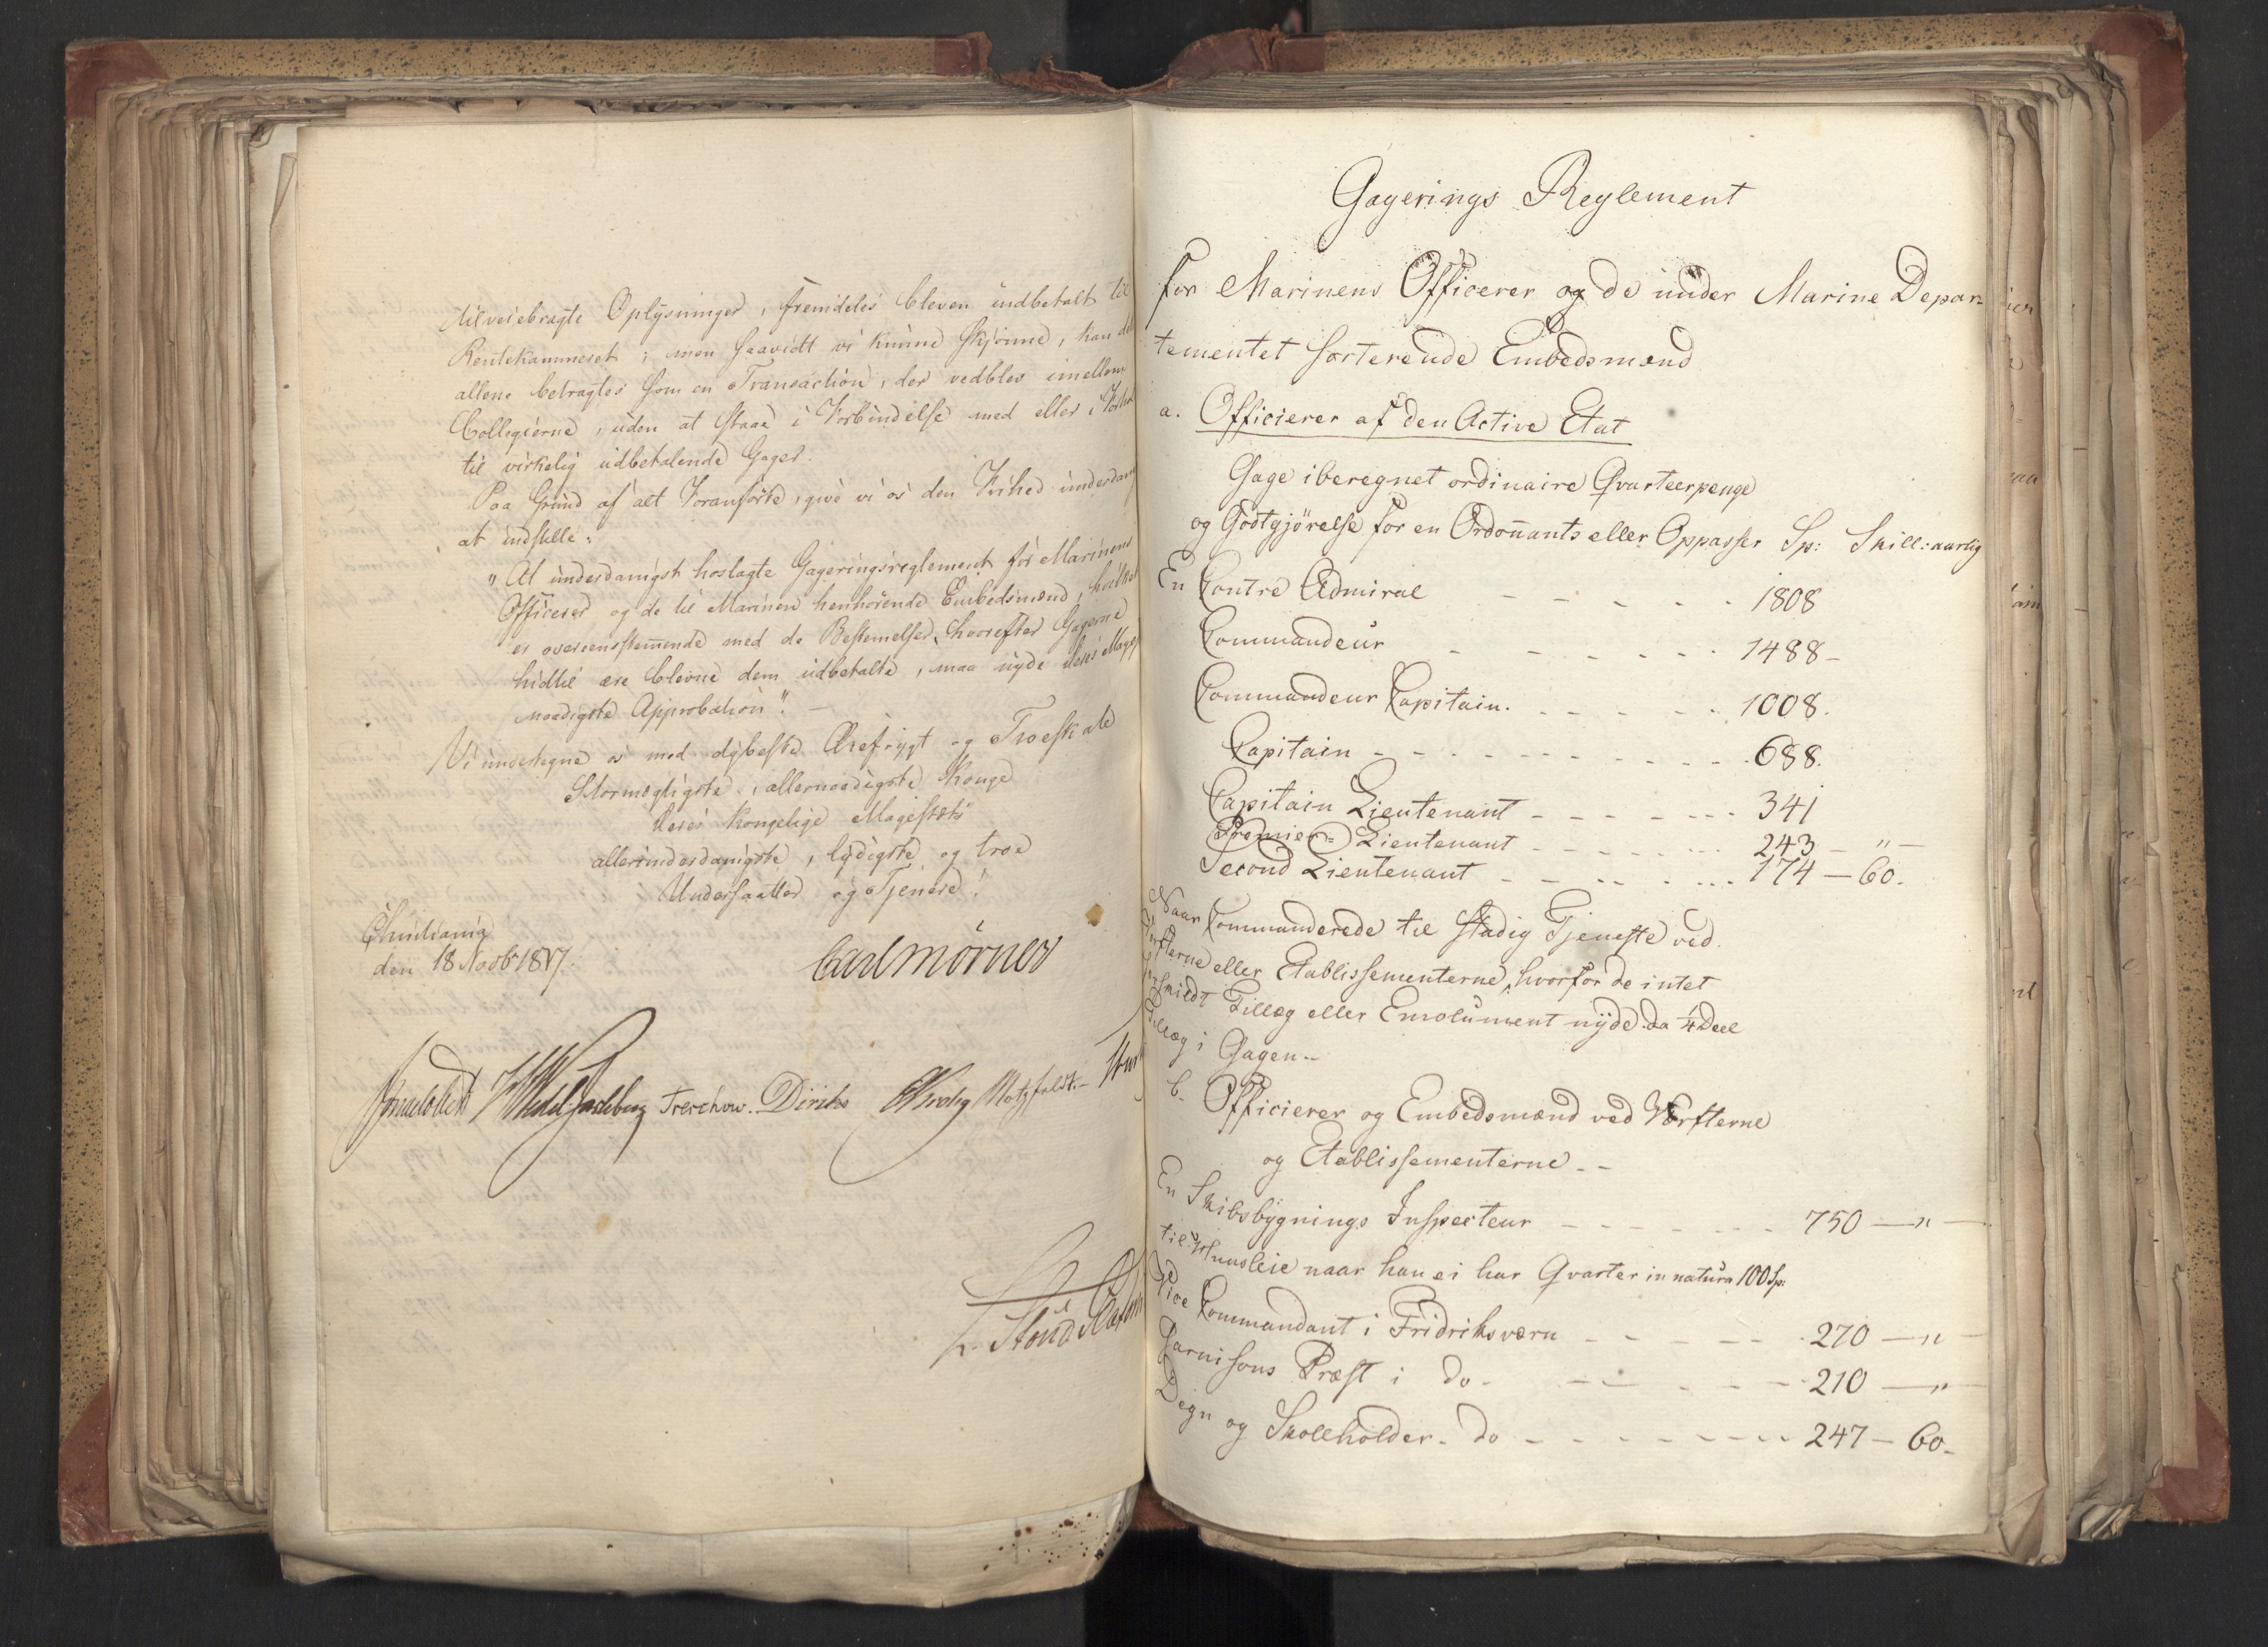 tilveiebragte Oplysninger, fremdeles bleven indbetalt til
Rentekammeret; men saavidt vi kunne skjönne, kan det
allene betragtes som en Transaction, der vedblev imellem
Collegierne, uden at staae i Forbindelse med eller i
til virkelig udbetalende Gager.
Paa Grund af alt Foranførte, give vi os den Frihed
at indstille:
"At underdanigst hoslagte Gageringsreglement for Marinens
Officerer og de til Marinen henhørende Embedsmænd, hvilket
er overeensstem̄ende med de Bestem̄elser, hvorefter Gagerne
hidtil ere blevne dem udbetalte, maa nyde Deres
naadigste Approbation". -
Vi undertegne os med dybeste Ærefrygt og Troeskab
Stormægtigste, allernaadigste Konge
Deres Kongelige Majestæts
allerunderdanigste, lydigste og troe
Undersaatter og Tjenere!
Christiania
den 18 Novbr 1817.
Carl Mörner
Sommerhielm Wedel Jarlsberg Treschow. Diriks Krohg Motzfeldt.
Gagerings Reglement
for Marinens Officerer og de under Marine Depar=
tementet sorterende Embedsmænd
a. Officierer af den Active Etat
Gage iberegnet ordinaire Qvarteerpenge
og Godtgjörelse for en Ordon̄ants eller Oppasser Sp: Skill: aarlig
En Contre Admiral - - - - - 1808
Commandeur - - - - - - 1488 -
Commandeur Capitain. - - - - - 1008.
Capitain - - - - - - - - - 688.
Capitain Lieutenant - - - - - - 341
Premier= Lieutenant - - - - - - 243 - " -
Second Lieutenant - - - - - - 174 - 60.
Naar Commanderede til stadig Tjeneste ved
Værfterne eller Etablissementerne, hvorfor de intet
særskildt Tillæg eller Emolument nyde da 1/4 Deel
Tillæg i Gagen. -
b. Officierer og Embedsmænd ved Værfterne
og Etablissementerne. -
En Skibsbygnings Inspecteur - - - - - - 750 - " -
til Huusleie naar han ei har Qvarter in natura 100 Sp:
Vice Commandant i Fridriksværn - - - - - 270 - " -
Garnisons Præst i do - - - - - 210 - " -
Degn og Skoleholder - do - - - - - - 247 - 60 -